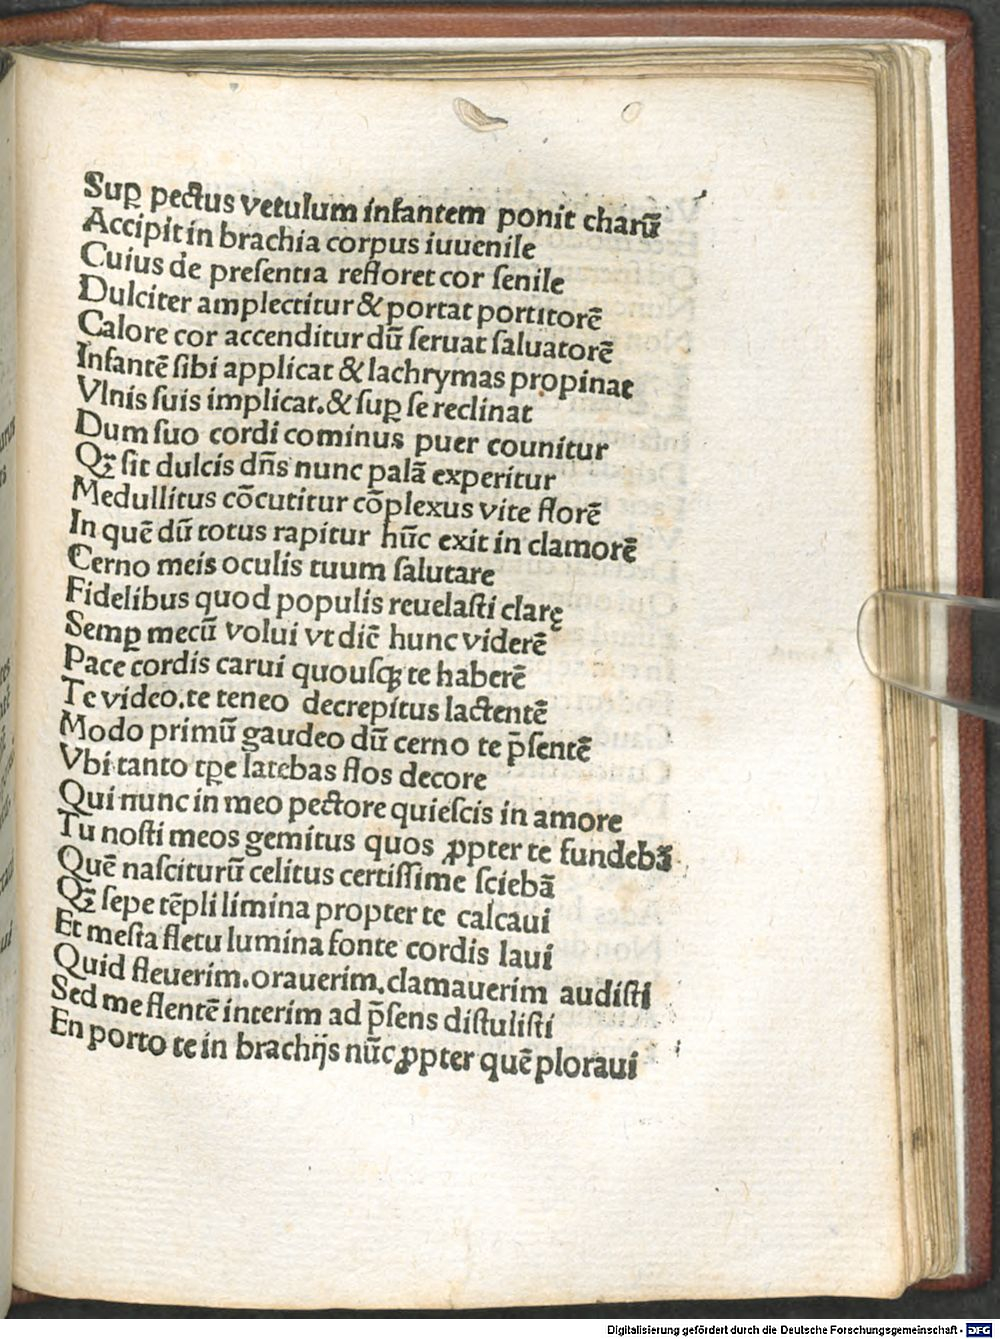 Suꝑ pectus vetulum infantem ponit charū
Accipit in brachia corpus iuuenile
Cuius de presentia refloret cor senile
Dulciter amplectitur & portat portitorē
Calore cor accenditur dū seruat saluatorē
Infantē sibi applicat & lachrymas propinat
Vlnis suis implicat. & suꝑ se reclinat
Dum suo cordi cominus puer counitur
Qꝫ sit dulcis dn̄s nunc palā experitur
Medullitus cōcutitur cōplexus vite florē
In quē dū totus rapitur hūc exit in clamorē
Cerno meis oculis tuum salutare
Fidelibus quod populis reuelasti clarę
Semꝑ mecū volui vt dič hunc viderē
Pace cordis carui quousqꝫ te haberē
Te video. te teneo decrepitus lactentē
Modo primū gaudeo dū cerno te p̄sentē
Vbi tanto tꝑe latebas flos decore
Qui nunc in meo pectore quiescis in amore
Tu nosti meos gemitus quos ꝓpter te fundebā
Quē nasciturū celitus certissime sciebā
Qꝫ sepe tēpli limina propter te calcaui
Et mesta fletu lumina fonte cordis laui
Quid fleuerim. orauerim. clamauerim audisti
Sed me flentē interim ad p̄sens distulisti
En porto te in brachijs nūc ꝓpter quē ploraui
Digitalisierung gefördert durch die Deutsche Forschungsgemeinschaft - DFG